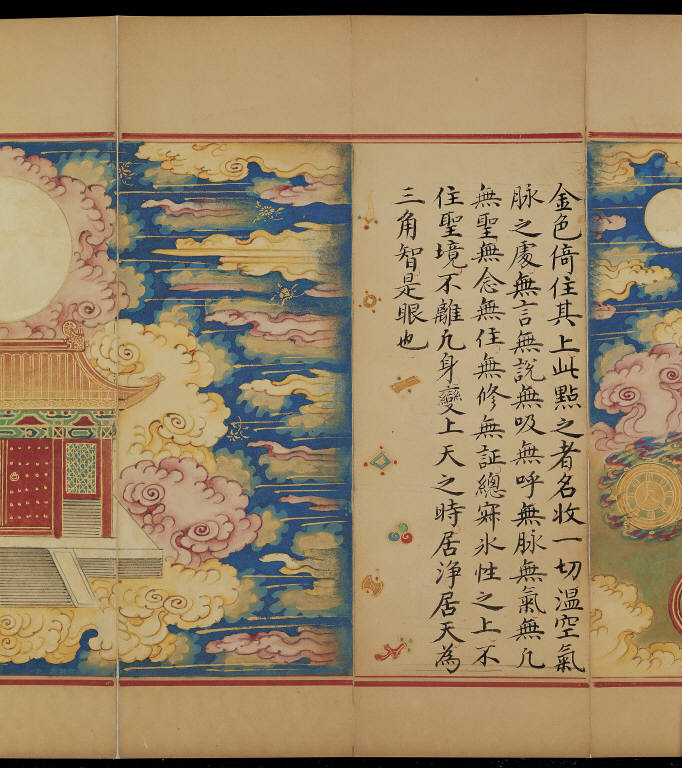 金色倚住其上此點之者名收一切溫空氣
脉之處無言無說無吸無呼無脉無氣無凡
無聖無念無住無修無証總寂氷性之上不
住聖境不離凡身變上天之時居淨居天為
三角智是眼也